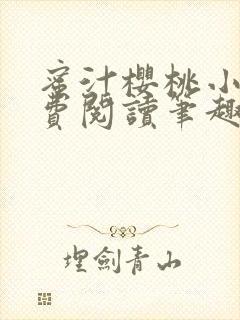 蜜汁櫻桃小
費閱讀筆趣
埋劍青山